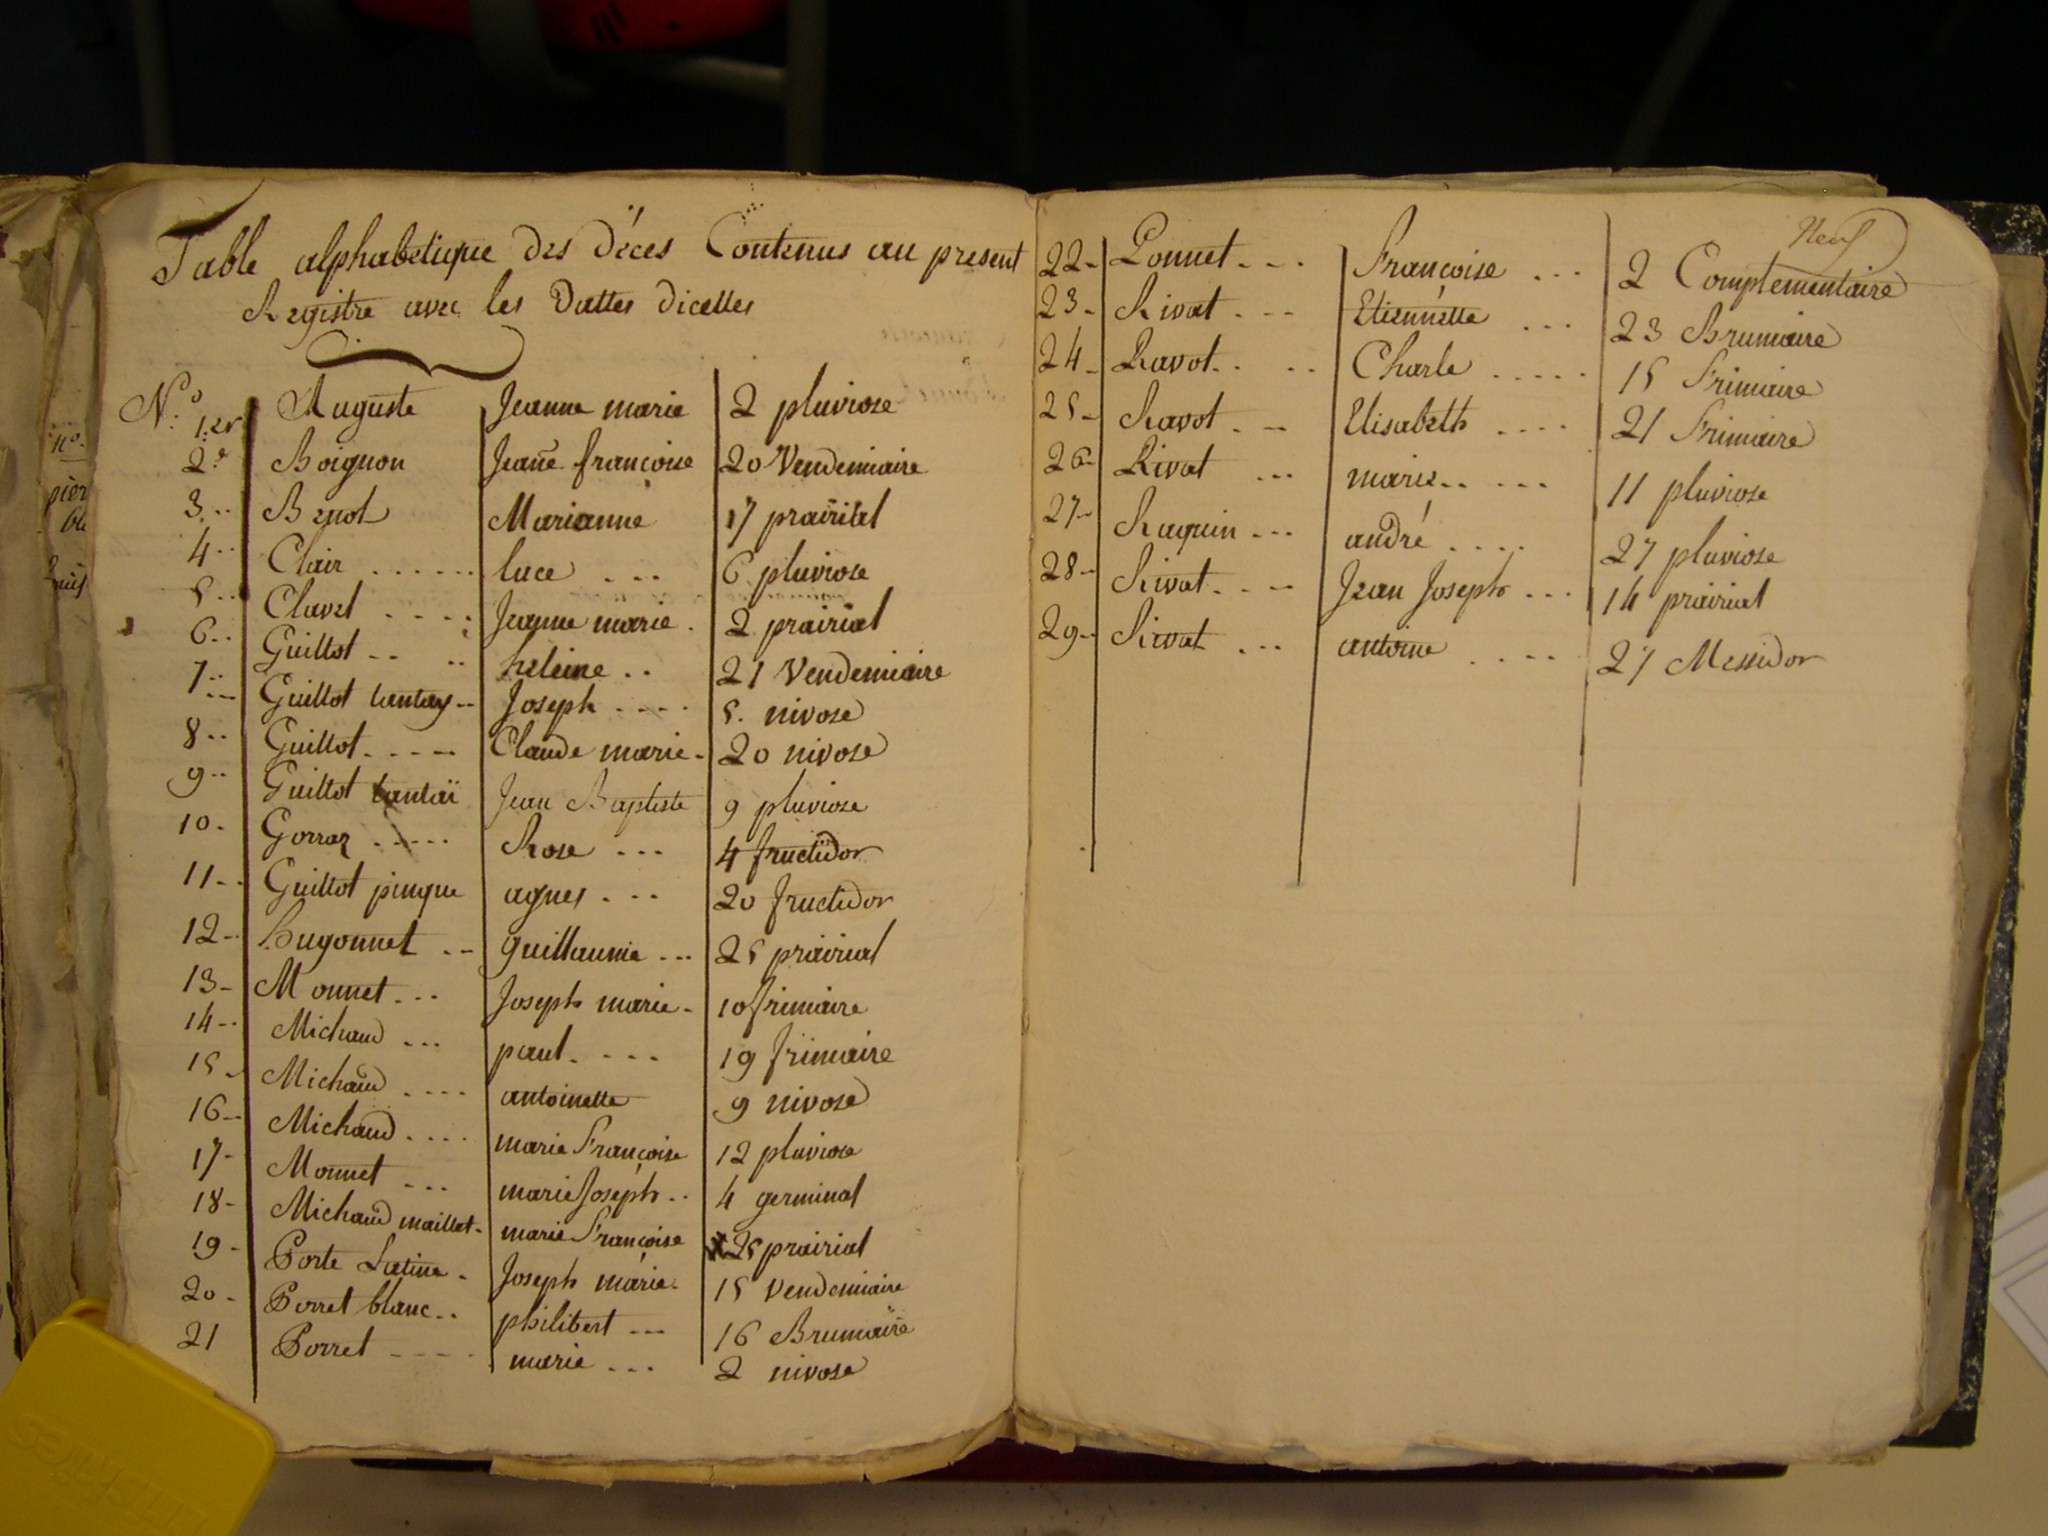 Table alphabetique des déces Contenus au present
Registre avec les Dattes dicelles
N.º
1.er Auguste Jeanne marie 2 pluviose
2.e Boignon Jeane françoise 20 Vendemiaire
3... Benot Marianne 17 prairial
4.. Clair ...... luce ... 6 pluviose
5.. Clavel .... Jeanne marie. 2 prairial
6.. Guillot.. .. heleine.. 21 Vendemiaire
7.. Guillot tantay.. Joseph.... 5. nivose
8.. Guillot.... Claude marie. 20 nivose
9.. Guillot tantaï Jean Baptiste 9 pluviose
10. Gorraz ..... Rose ... 4 fructidor
11.. Guillot pinque agnes... 20 fructidor
12.. hugonnet .. guillaume... 25 prairial
13. Monnet... Joseph marie. 10 frimaire
14.. Michaud ... paul.... 19 frimaire
15. Michaud .... antoinette 9 nivose
16.. Michaud.... marie Françoise 12 pluviose
17. Monnet ... marie Joseph.. 4 germinal
18. Michaud maillet. marie Françoise 25 prairial
19. Porte Latine. Joseph marie. 15 vendemiaire
20. Porret blanc.. philibert... 16 Brumaire
21 Porret.... marie... 2 nivose
Neuf
22. Ponnet... Françoise ... 2 Complementaire
23. Rivat... Etiennette ... 23 Brumaire
24. Ravot.. .. Charle ..... 15 Frimaire
25. Ravot.. Elisabeth .... 21 Frimaire
26. Rivat ... marie.. ... 11 pluviose
27.. Raquin... andré.... 27 pluviose
28.. Rivat.... Jean Joseph... 14 prairial
29.. Rivat... antoine .... 27 Messidor